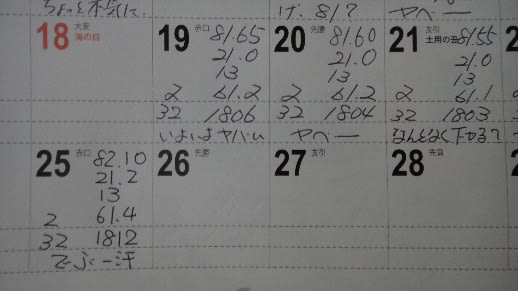 ちょっと本気に.
げ. 81?
ヤベー
18 大安
海の日
19 赤口 81.65
21.0
13
2 61.2
32 1806
いよいよヤバい
20 先勝 81.60
21.0
13
2 61.2
32 1804
ヤベー
21 友引 土用の丑 81.55
21.0
13
2 61.1
32 1803
なんとなく下がる?
25 赤口 82.10
21.2
13
2 61.4
32 1812
でぶー汗
26 先勝
27 友引
28 先負